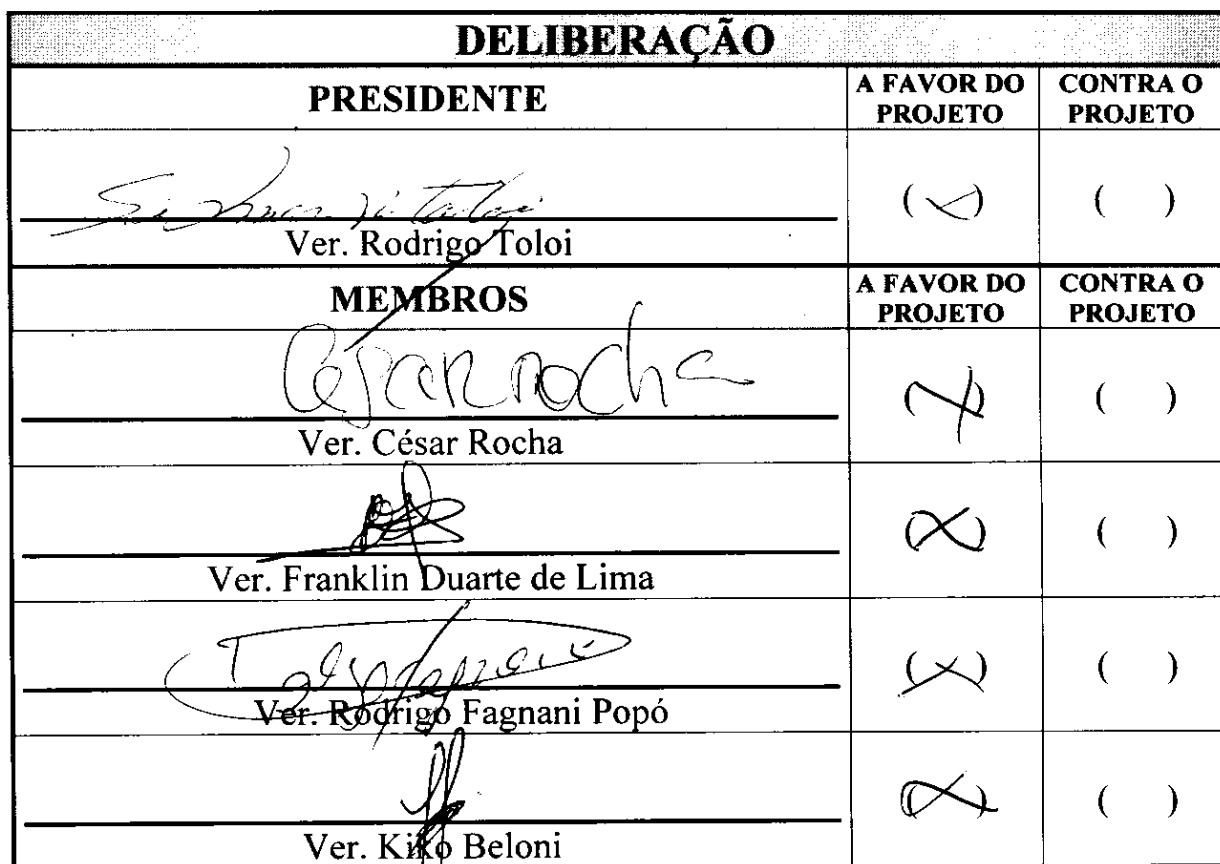 DELIBERAÇÃO
PRESIDENTE A FAVOR DO PROJETO CONTRA O PROJETO
( X ) ( )
Ver. Rodrigo Toloi
MEMBROS A FAVOR DO PROJETO CONTRA O PROJETO
César rocha (X) ( )
Ver. César Rocha
(X) ( )
Ver. Franklin Duarte de Lima
(X) ( )
Ver. Rodrigo Fagnani Popó
(X) ( )
Ver. Kiko Beloni